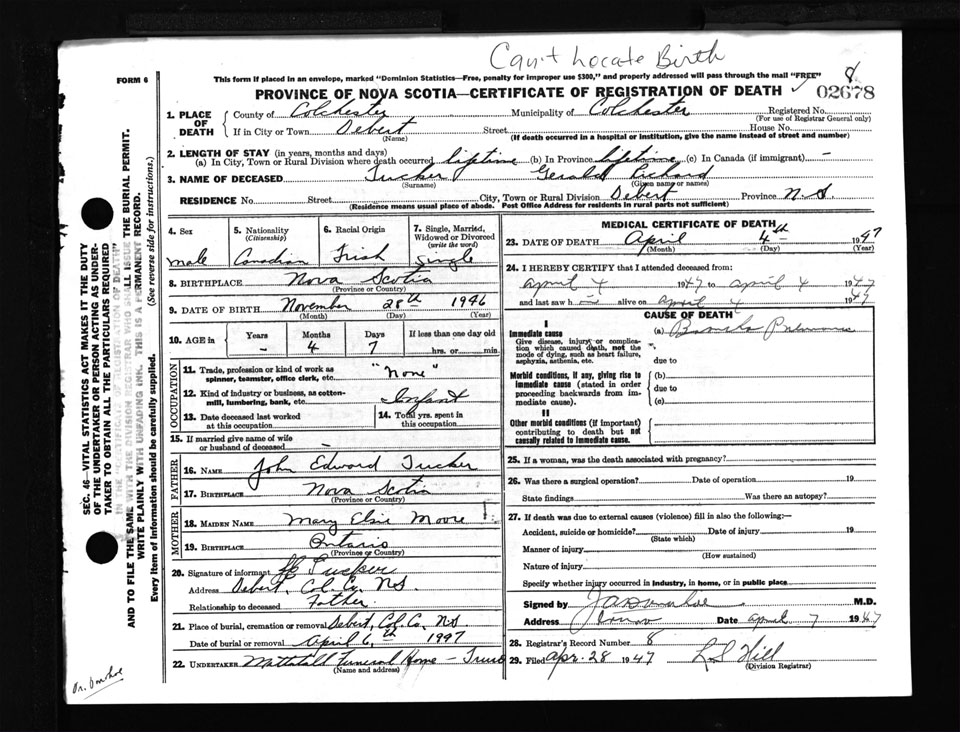 Can't Locate Birth
FORM 6
This form if placed in an envelope, marked "Dominion Statistics—Free, penalty for improper use $300," and properly addressed will pass through the mail "FREE"
8
PROVINCE OF NOVA SCOTIA—CERTIFICATE OF REGISTRATION OF DEATH
02678
1. PLACE OF DEATH
County of Colchester Municipality of Colchester Registered No.
(For use of Registrar General only)
If in City or Town Debert Street House No.
(Name) (If death occurred in a hospital or institution, give the name instead of street and number)
2. LENGTH OF STAY (in years, months and days)
(a) In City, Town or Rural Division where death occurred lifetime (b) In Province lifetime (c) In Canada (if immigrant) —
3. NAME OF DECEASED Tucker Gerald Richard
(Surname) (Given name or names)
RESIDENCE No. Street City, Town or Rural Division Debert Province N.S
(Residence means usual place of abode. Post Office Address for residents in rural parts not sufficient)
4. Sex male
5. Nationality (Citizenship) Canadian
6. Racial Origin Irish
7. Single, Married, Widowed or Divorced (write the word) Single
8. BIRTHPLACE Nova Scotia
(Province or Country)
9. DATE OF BIRTH November 28th 1946
(Month) (Day) (Year)
10. AGE in Years Months Days If less than one day old
- 4 7 hrs. or min.
OCCUPATION
11. Trade, profession or kind of work as spinner, teamster, office clerk, etc. "None"
12. Kind of industry or business, as cotton-mill, lumbering, bank, etc. Infant
13. Date deceased last worked at this occupation
14. Total yrs. spent in this occupation
15. If married give name of wife or husband of deceased —
FATHER
16. NAME John Edward Tucker
17. BIRTHPLACE Nova Scotia
(Province or Country)
MOTHER
18. MAIDEN NAME Mary Elsie Moore
19. BIRTHPLACE Ontario
(Province or Country)
20. Signature of informant Tucker
Address Debert, Col. Co. N.S
Relationship to deceased Father
21. Place of burial, cremation or removal Debert, Col. Co. N.S
Date of burial or removal April 6th 1947
22. UNDERTAKER Mattatall Funeral Home - Truro
(Name and address)
MEDICAL CERTIFICATE OF DEATH
23. DATE OF DEATH April 4th 1947
(Month) (Day) (Year)
24. I HEREBY CERTIFY that I attended deceased from:
april 4 1947 to april 4 1947
and last saw h im alive on april 4 1947
CAUSE OF DEATH
I
Immediate cause
Give disease, injury or complication which caused death, not the mode of dying, such as heart failure, asphyxia, asthenia, etc.
(a) Broncho Pneumonia
due to
Morbid conditions, if any, giving rise to immediate cause (stated in order proceeding backwards from immediate cause).
(b)
due to
(c)
II
Other morbid conditions (if important) contributing to death but not causally related to immediate cause.
25. If a woman, was the death associated with pregnancy?
26. Was there a surgical operation? Date of operation 19
State findings Was there an autopsy?
27. If death was due to external causes (violence) fill in also the following:—
Accident, suicide or homicide? Date of injury 19
(State which)
Manner of injury
(How sustained)
Nature of injury
Specify whether injury occurred in industry, in home, or in public place
Signed by M.D.
Address Truro Date april 7 1947
28. Registrar's Record Number 8
29. Filed apr. 28 1947 Hill
(Division Registrar)
SEC. 46—VITAL STATISTICS ACT MAKES IT THE DUTY
OF THE UNDERTAKER OR PERSON ACTING AS UNDER-
TAKER TO OBTAIN ALL THE PARTICULARS REQUIRED
IN THE "CERTIFICATE OF REGISTRATION OF DEATH"
AND TO FILE THE SAME WITH THE DIVISION REGISTRAR WHO SHALL ISSUE THE BURIAL PERMIT.
WRITE PLAINLY WITH UNFADING INK. THIS IS A PERMANENT RECORD.
Every item of information should be carefully supplied. (See reverse side for instructions.)
Dr. Donahoe